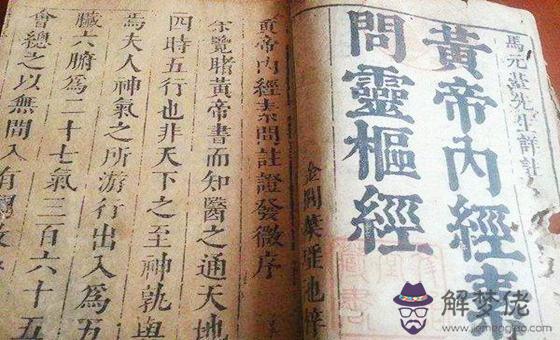 馬元臺先生詳註
黃帝內經素
問靈樞經
金閶葉
黃帝內經素問註證發微序
余覽睹黃帝書而知醫之通天地
四時五行也非天下之至神孰與
焉夫人神氣之所游行出入爲五
臟六腑爲二十七氣三百六十五
會總之以無間入有
解梦佬
www.jiemenglao.com